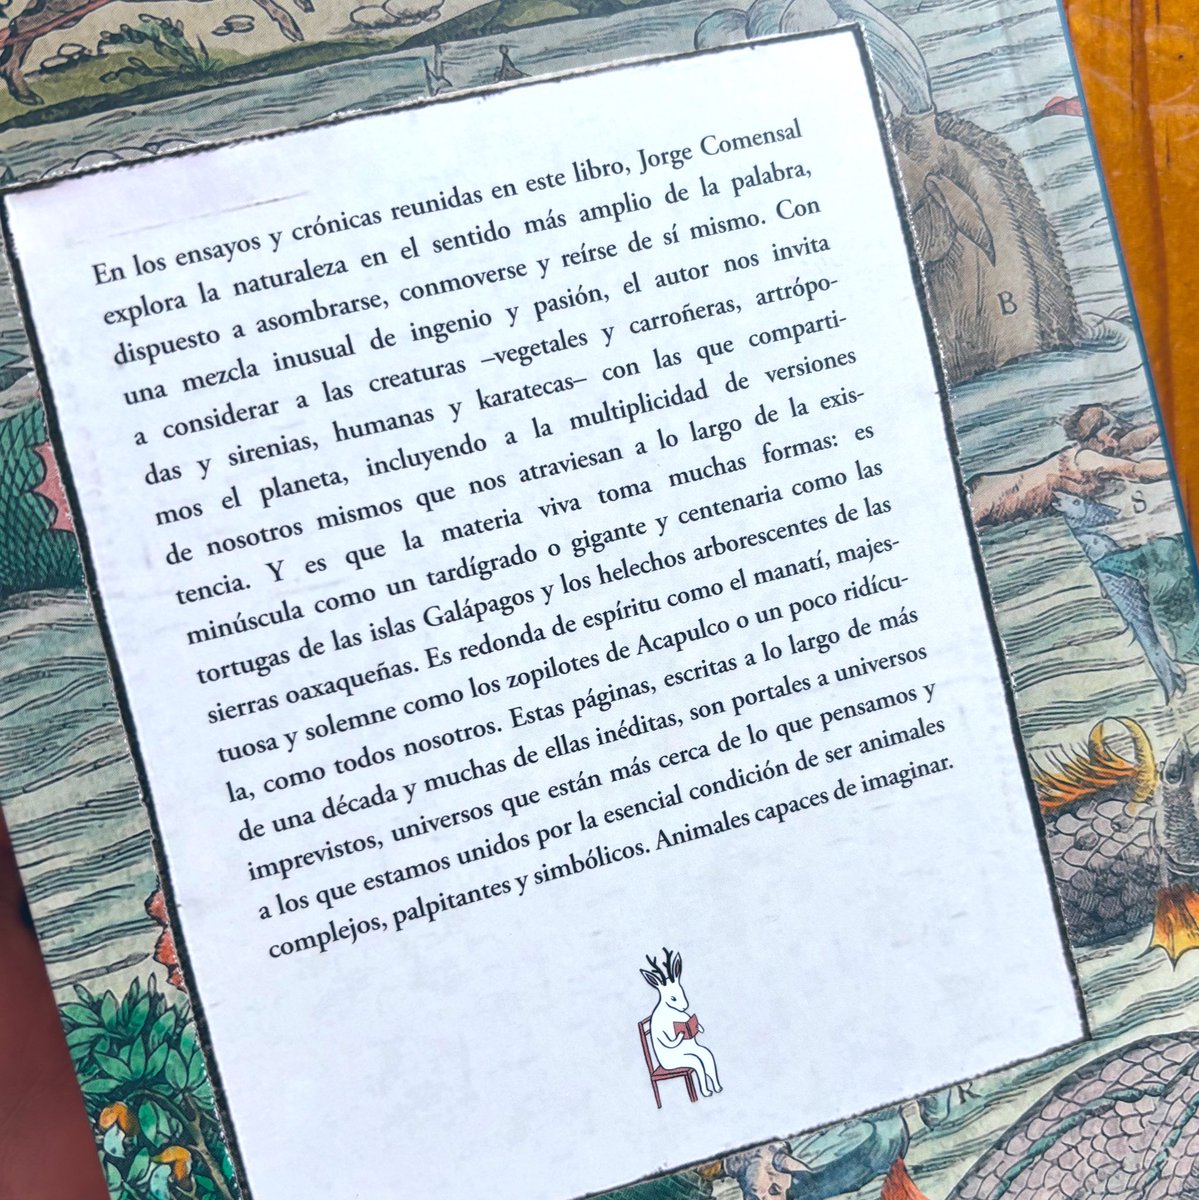 En los ensayos y crónicas reunidas en este libro, Jorge Comensal
explora la naturaleza en el sentido más amplio de la palabra,
dispuesto a asombrarse, conmoverse y reírse de sí mismo. Con
una mezcla inusual de ingenio y pasión, el autor nos invita
a considerar a las creaturas –vegetales y carroñeras, artrópo-
das y sirenias, humanas y karatecas– con las que comparti-
mos el planeta, incluyendo a la multiplicidad de versiones
de nosotros mismos que nos atraviesan a lo largo de la exis-
tencia. Y es que la materia viva toma muchas formas: es
minúscula como un tardígrado o gigante y centenaria como las
tortugas de las islas Galápagos y los helechos arborescentes de las
sierras oaxaqueñas. Es redonda de espíritu como el manatí, majes-
tuosa y solemne como los zopilotes de Acapulco o un poco ridícu-
la, como todos nosotros. Estas páginas, escritas a lo largo de más
de una década y muchas de ellas inéditas, son portales a universos
imprevistos, universos que están más cerca de lo que pensamos y
a los que estamos unidos por la esencial condición de ser animales
complejos, palpitantes y simbólicos. Animales capaces de imaginar.
B
S
R